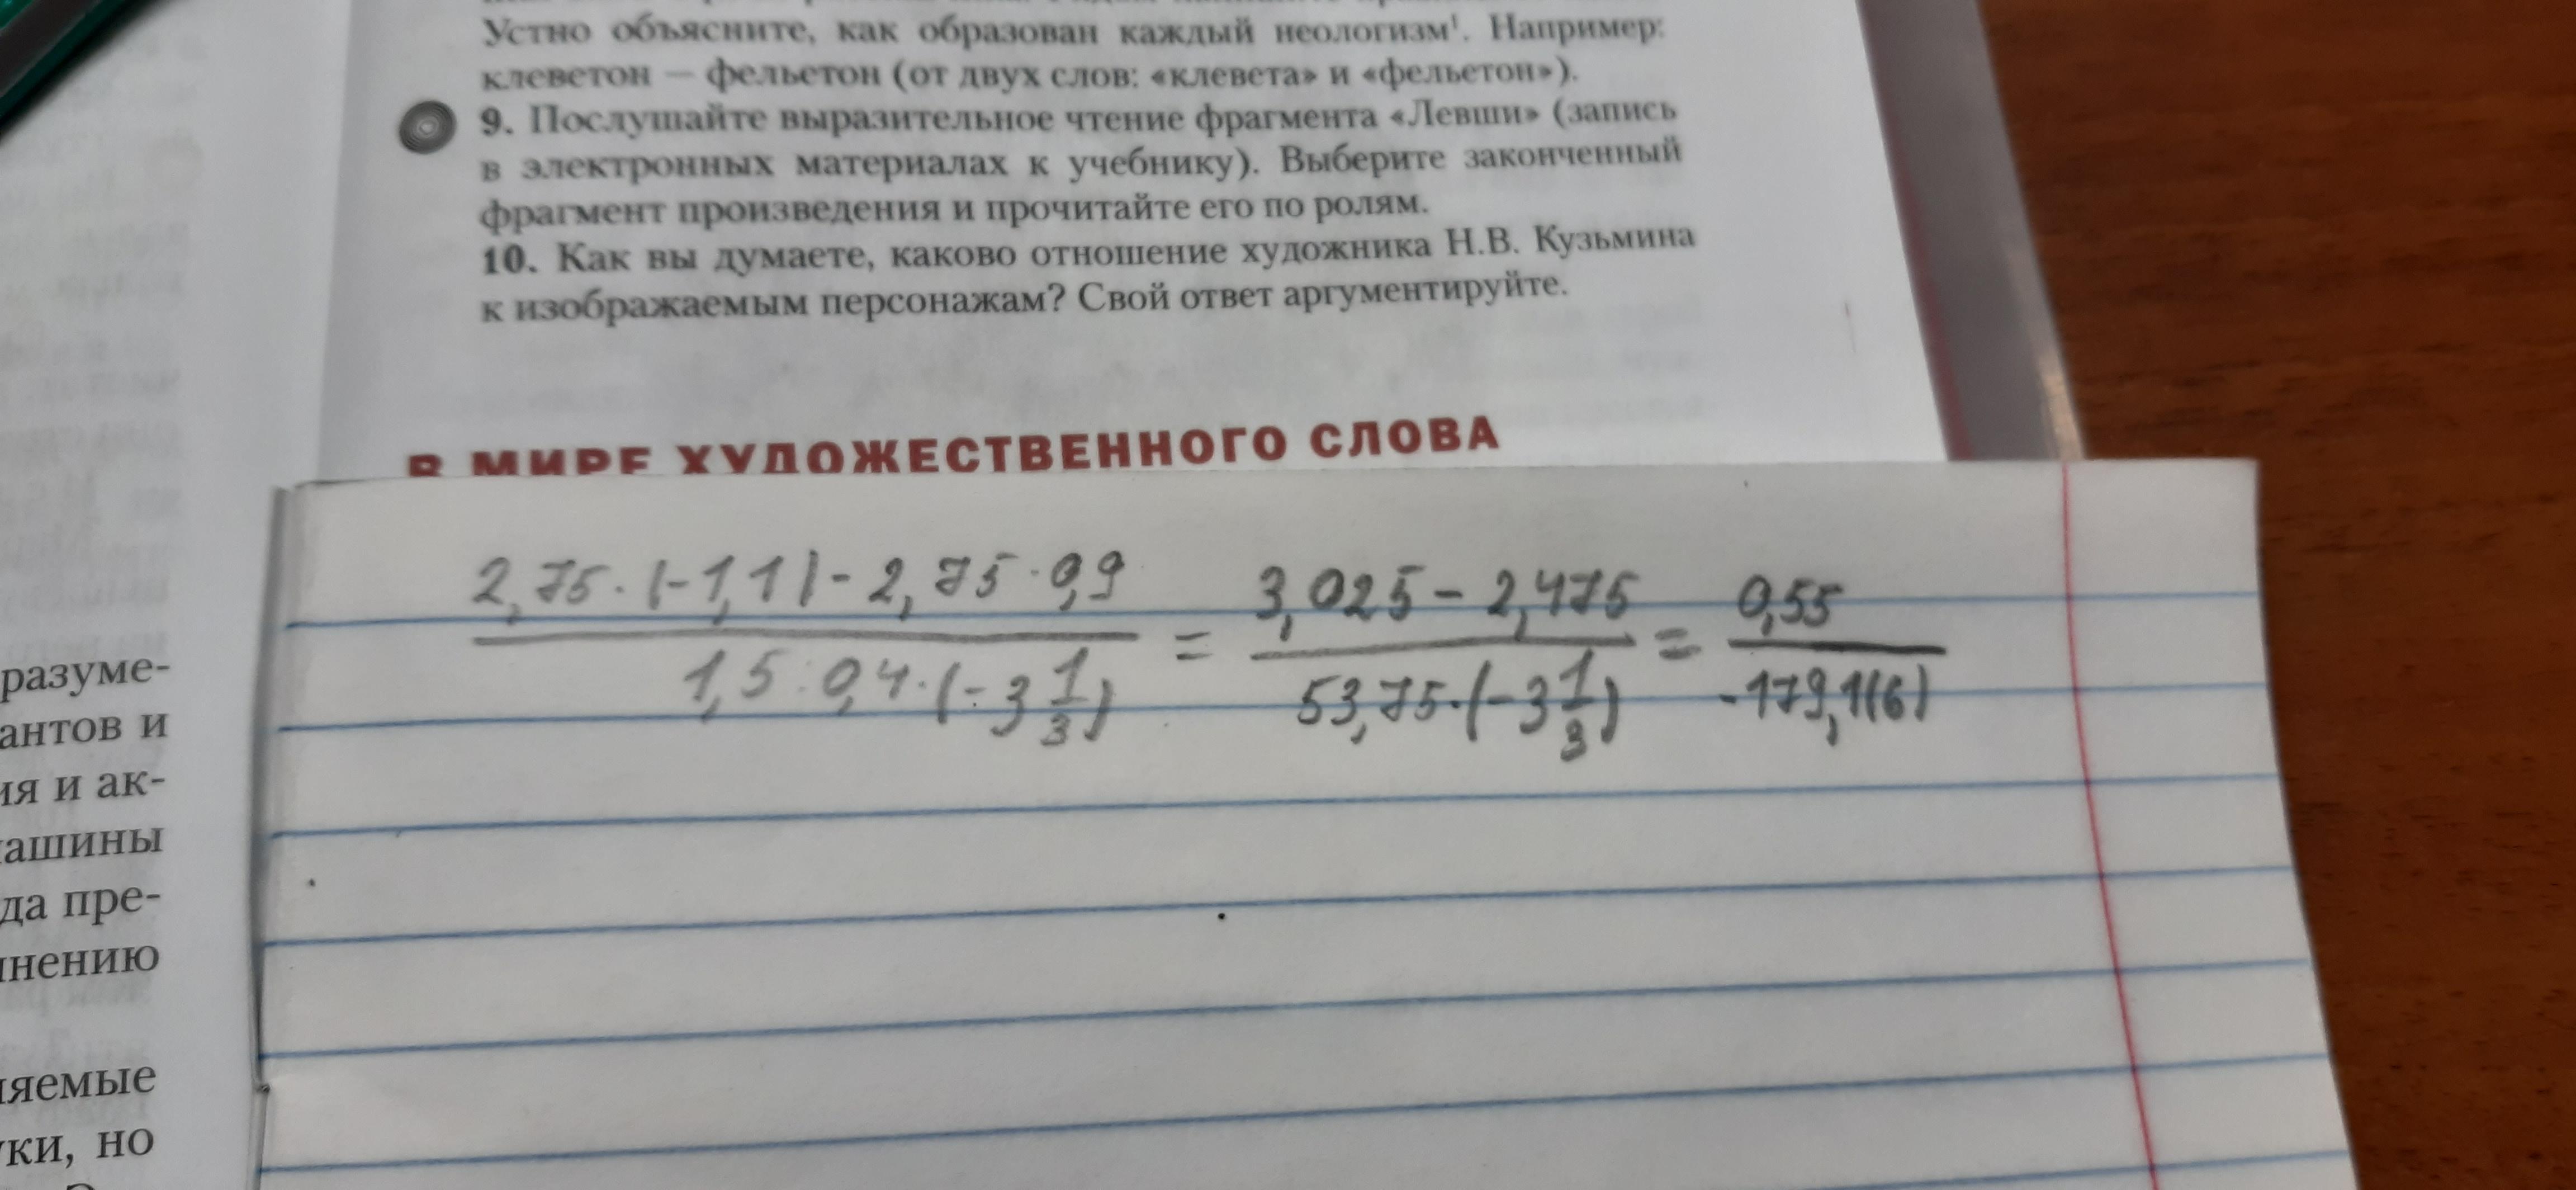 Устно объясните, как образован каждый неологизм¹. Например:
клеветон — фельетон (от двух слов: «клевета» и «фельетон»).
9. Послушайте выразительное чтение фрагмента «Левши» (запись
в электронных материалах к учебнику). Выберите законченный
фрагмент произведения и прочитайте его по ролям.
10. Как вы думаете, каково отношение художника Н.В. Кузьмина
к изображаемым персонажам? Свой ответ аргументируйте.
В МИРЕ ХУДОЖЕСТВЕННОГО СЛОВА
2,75·(-1,1)-2,75·0,9 / 1,5:0,4·(-3 1/3) = 3,025-2,475 / 53,75·(-3 1/3) = 0,55 / -179,1(6)
разуме-
антов и
ия и ак-
машины
да пре-
нению
ляемые
уки, но